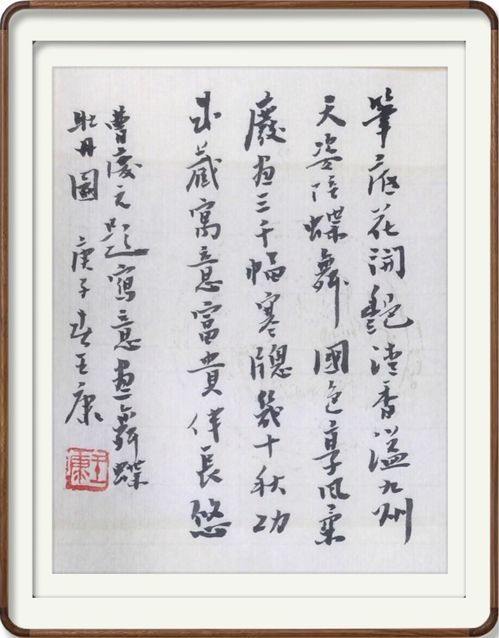 筆底花開艷清香溢九州
天姿陪蝶舞國色享風柔
廢画三千幅寒牕幾十秋功
成藏寓意富貴伴長悠
曹慶元題寫意画舞蝶
牡丹圖 庚子春王康
王康